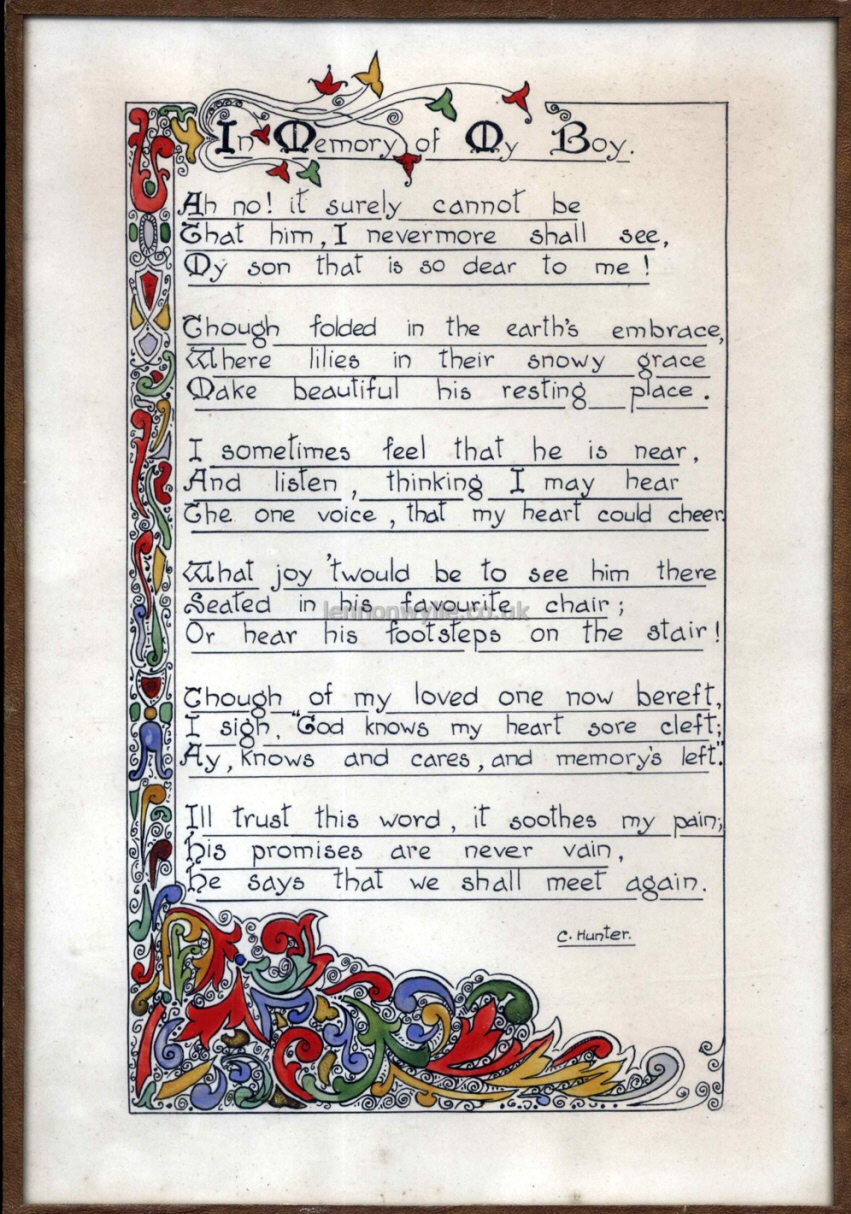 In Memory of My Boy.
Ah no! it surely cannot be
That him, I nevermore shall see,
My son that is so dear to me!
Though folded in the earth's embrace,
Where lilies in their snowy grace
Make beautiful his resting place.
I sometimes feel that he is near,
And listen, thinking I may hear
The one voice, that my heart could cheer.
What joy 'twould be to see him there
Seated in his favourite chair;
Or hear his footsteps on the stair!
Though of my loved one now bereft,
I sigh, "God knows my heart sore cleft;
Ay, knows and cares, and memory's left."
Ill trust this word, it soothes my pain;
His promises are never vain,
He says that we shall meet again.
C. Hunter.
lennonwylie.co.uk